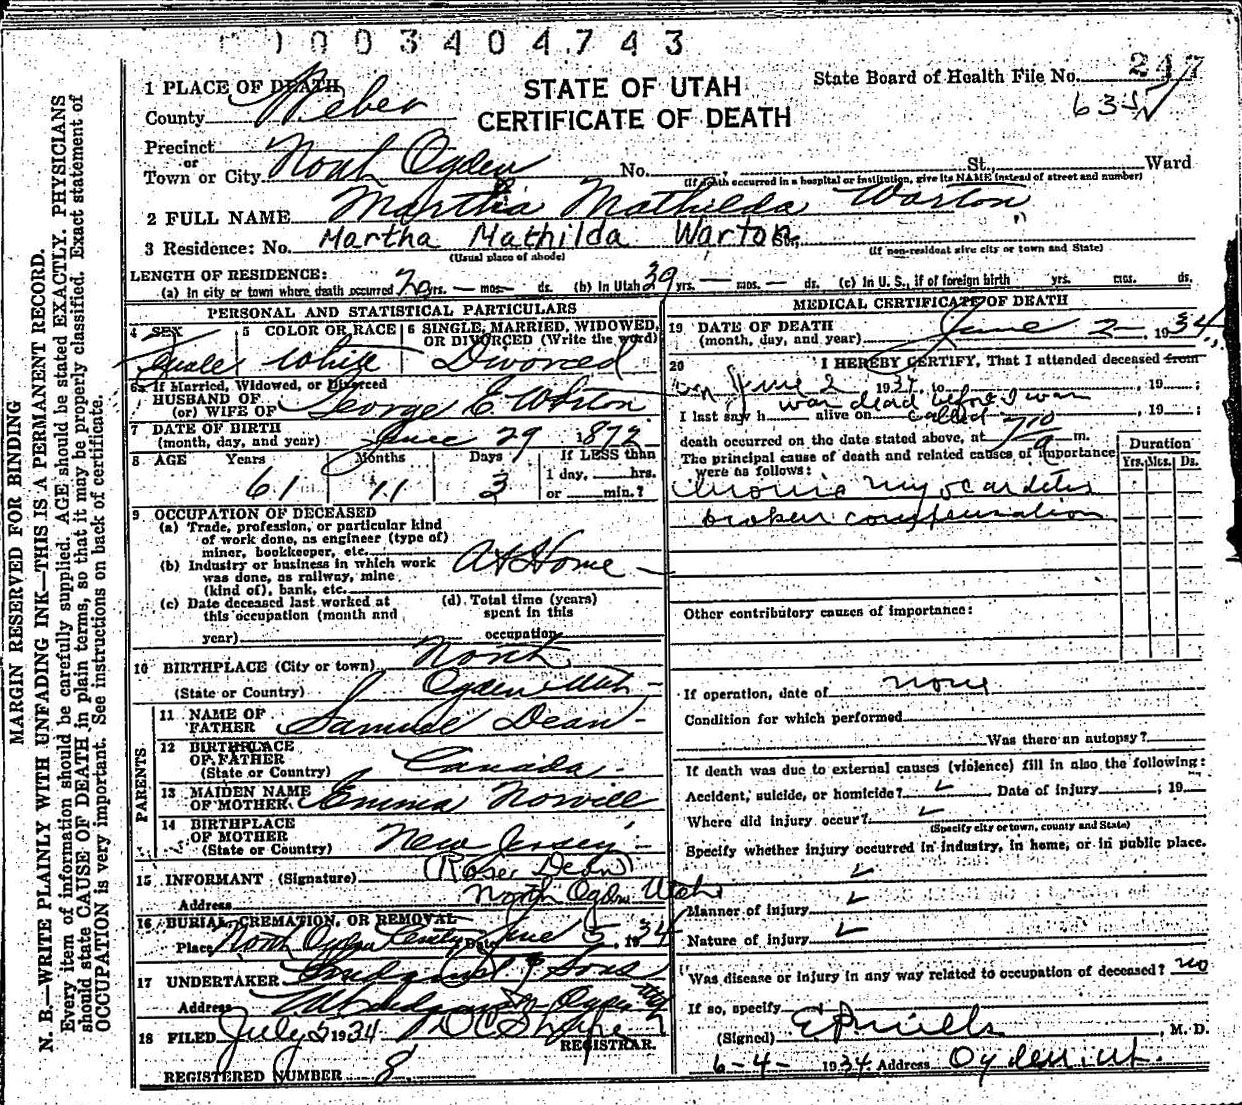 1003404743
STATE OF UTAH
CERTIFICATE OF DEATH
State Board of Health File No. 247
635
1 PLACE OF DEATH
County Weber
Precinct
or
Town or City North Ogden No. , St., Ward
(If death occurred in a hospital or institution, give its NAME instead of street and number)
2 FULL NAME Martha Mathilda Warton
3 Residence: No. Martha Mathilda Warton St.,
(Usual place of abode) (If non-resident give city or town and State)
LENGTH OF RESIDENCE:
(a) In city or town where death occurred 20 yrs. — mos. — ds. (b) In Utah 39 yrs. — mos. — ds. (c) In U. S., if of foreign birth yrs. mos. ds.
PERSONAL AND STATISTICAL PARTICULARS
4 SEX
Female
5 COLOR OR RACE
White
6 SINGLE, MARRIED, WIDOWED, OR DIVORCED (Write the word)
Divorced
6a If Married, Widowed, or Divorced
HUSBAND OF
(or) WIFE OF George E. Warton
7 DATE OF BIRTH
(month, day, and year) June 29 1872
8 AGE Years Months Days If LESS than
1 day, hrs.
61 11 3 or min.?
9 OCCUPATION OF DECEASED
(a) Trade, profession, or particular kind
of work done, as engineer (type of)
miner, bookkeeper, etc.
At Home —
(b) Industry or business in which work
was done, as railway, mine
(kind of), bank, etc.
(c) Date deceased last worked at
this occupation (month and
year)
(d) Total time (years)
spent in this
occupation
10 BIRTHPLACE (City or town) North
(State or Country) Ogden Utah —
PARENTS
11 NAME OF
FATHER Samuel Dean -
12 BIRTHPLACE
OF FATHER
(State or Country) Canada -
13 MAIDEN NAME
OF MOTHER Emma Norvill
14 BIRTHPLACE
OF MOTHER
(State or Country) New Jersey -
15 INFORMANT (Signature) (Rose Dean)
Address North Ogden Utah
16 BURIAL, CREMATION, OR REMOVAL
Place North Ogden Date June 5, 1934
17 UNDERTAKER & Sons
Address Ogden Utah
18 FILED July 5 1934
REGISTRAR.
REGISTERED NUMBER 8
MEDICAL CERTIFICATE OF DEATH
19 DATE OF DEATH
(month, day, and year) June 2 — , 1934
20 I HEREBY CERTIFY, That I attended deceased from
on June 2 1934 to , 19 ;
was dead before I was
I last saw h alive on called , 19 ;
death occurred on the date stated above, at 7 10 a m.
The principal cause of death and related causes of importance
were as follows:
Duration
Yrs. Mos. Ds.
Chronic myocarditis
broken compensation
Other contributory causes of importance:
If operation, date of none
Condition for which performed
Was there an autopsy?
If death was due to external causes (violence) fill in also the following:
Accident, suicide, or homicide? Date of injury ; 19
Where did injury occur?
(Specify city or town, county and State)
Specify whether injury occurred in industry, in home, or in public place.
Manner of injury
Nature of injury
Was disease or injury in any way related to occupation of deceased? no
If so, specify
(Signed) E P Mills , M. D.
6-4- 1934 Address Ogden Ut.
MARGIN RESERVED FOR BINDING
N. B.—WRITE PLAINLY WITH UNFADING INK—THIS IS A PERMANENT RECORD.
Every item of information should be carefully supplied. AGE should be stated EXACTLY. PHYSICIANS
should state CAUSE OF DEATH in plain terms, so that it may be properly classified. Exact statement of
OCCUPATION is very important. See instructions on back of certificate.